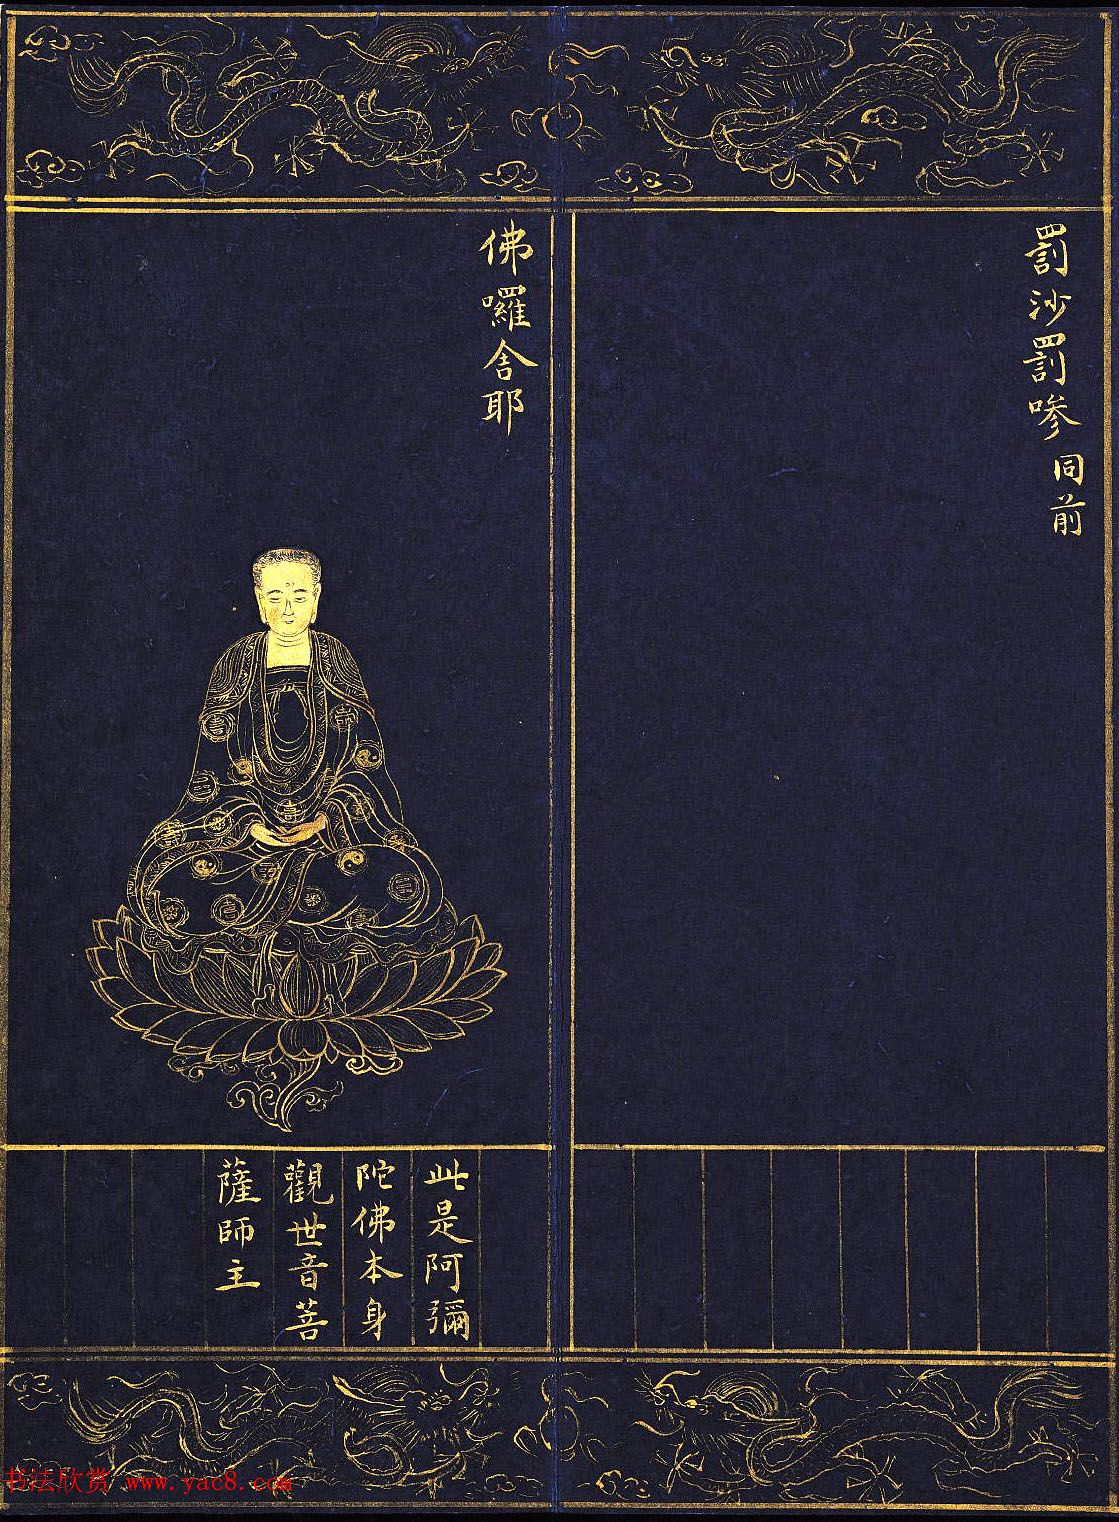 罰沙罰嘇 同前
佛囉舍耶
此是阿彌
陀佛本身
觀世音菩
薩師主
书法欣赏 www.yac8.com